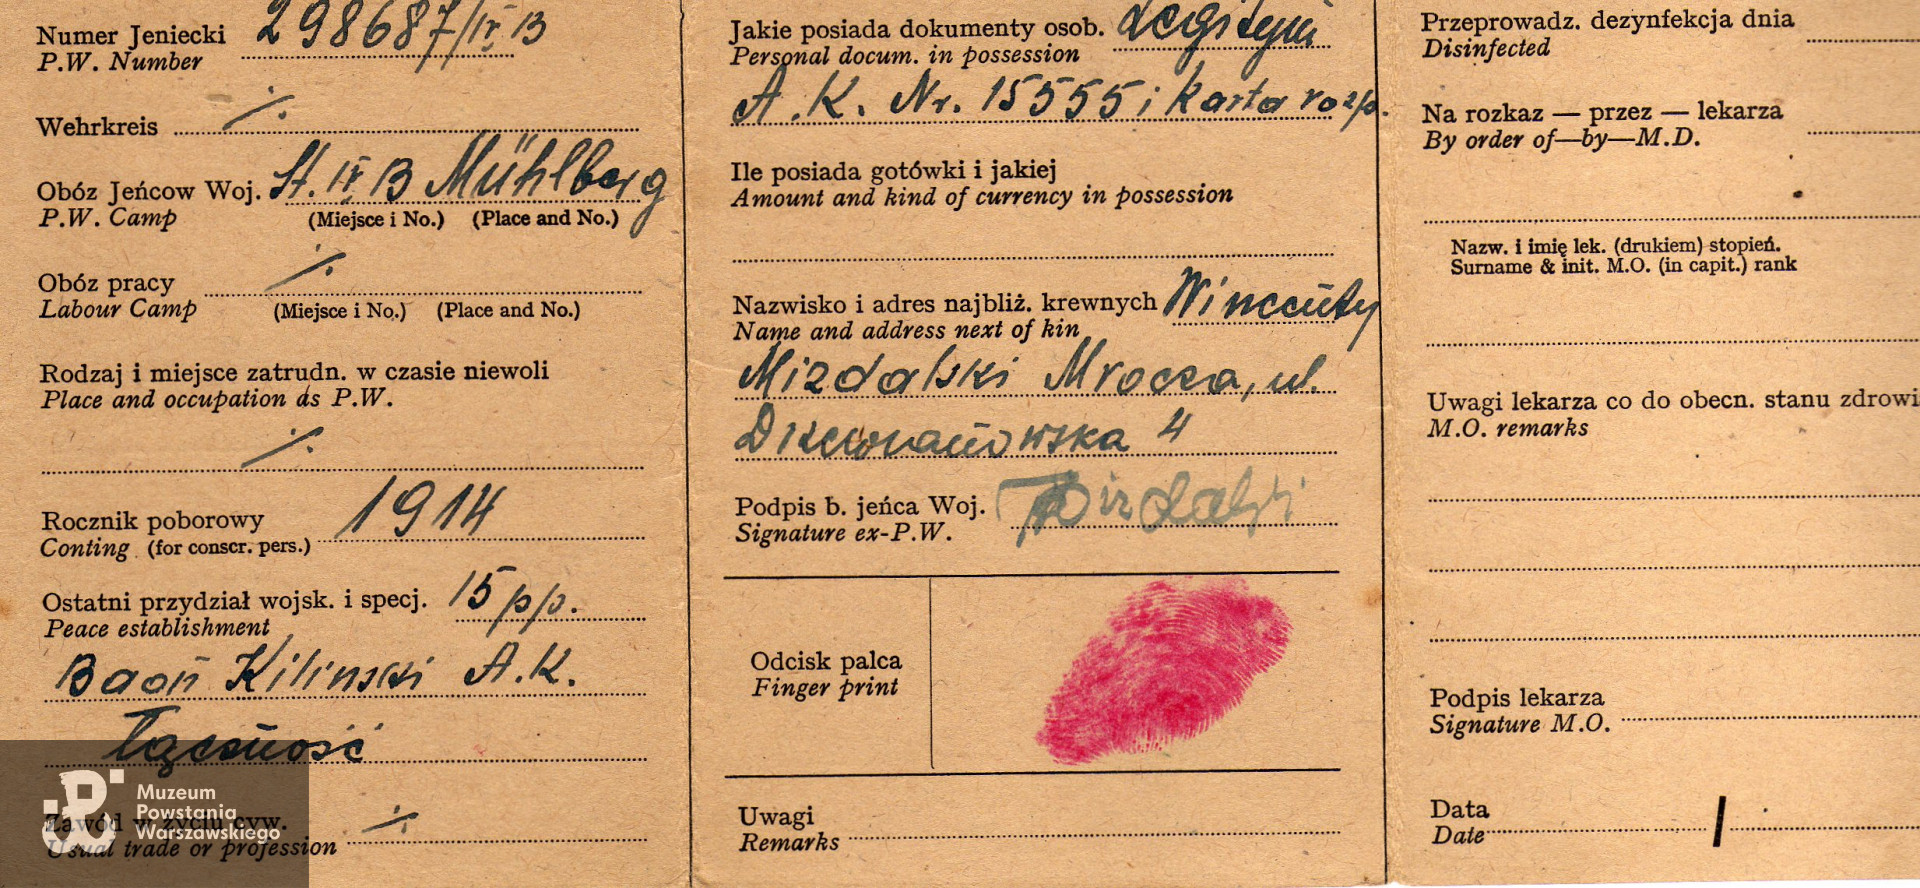 Numer Jeniecki 298687/IV B
P.W. Number
Wehrkreis ./.
Obóz Jeńcow Woj. St. IV B Mühlberg
P.W. Camp (Miejsce i No.) (Place and No.)
Obóz pracy ./.
Labour Camp (Miejsce i No.) (Place and No.)
Rodzaj i miejsce zatrudn. w czasie niewoli
Place and occupation as P.W.
./.
Rocznik poborowy 1914
Conting (for conscr. pers.)
Ostatni przydział wojsk. i specj. 15 pp.
Peace establishment
Baon Kilinski A.K.
Łączność
Zawód w życiu cyw. ./.
Usual trade or profession
Muzeum
Powstania
Warszawskiego
Jakie posiada dokumenty osob. Legitym
Personal docum. in possession
A.K. Nr. 15555 i karta rozp.
Ile posiada gotówki i jakiej
Amount and kind of currency in possession
Nazwisko i adres najbliż. krewnych Wincenty
Name and address next of kin
Mizdalski Mrocza, ul.
4
Podpis b. jeńca Woj.
Signature ex-P.W.
Odcisk palca
Finger print
Uwagi
Remarks
Przeprowadz. dezynfekcja dnia
Disinfected
Na rozkaz — przez — lekarza
By order of—by—M.D.
Nazw. i imię lek. (drukiem) stopień.
Surname & init. M.O. (in capit.) rank
Uwagi lekarza co do obecn. stanu zdrowi
M.O. remarks
Podpis lekarza
Signature M.O.
Data
Date /